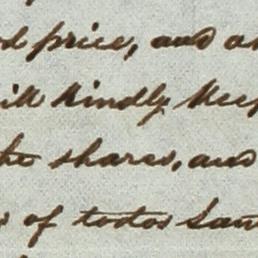 price, and
kindly keep
the shares, and
of todos San